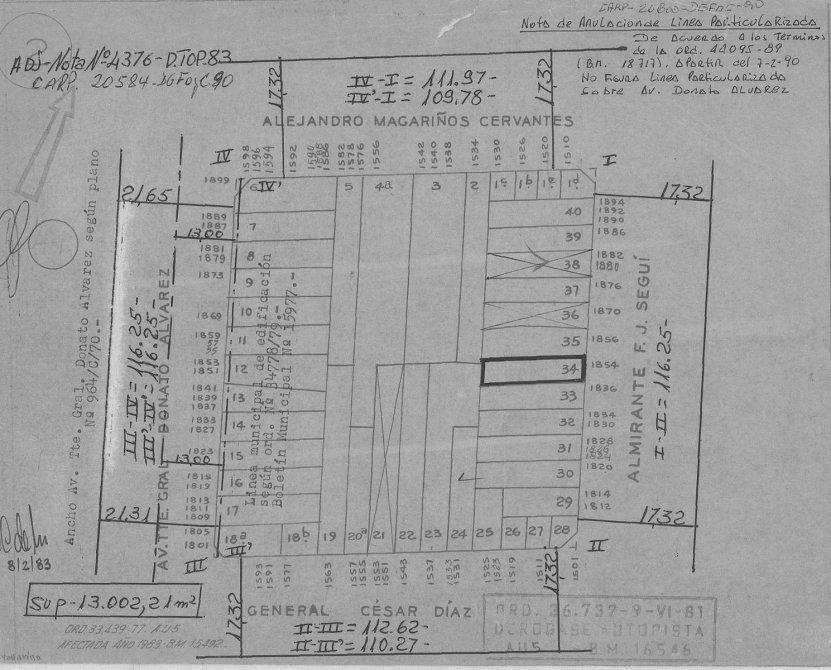 CARP- 20800-DGFOC-90
Nota de Anulacion de Linea Particularizada
De acuerdo a los Terminos
de la ord. 44095-89
(B.M. 18717). Apartir del 7-2-90
No Figura Linea Particularizada
Sobre Av. Donato ALVAREZ
ADJ-Nota Nº4376-D.TOP.83
CARP. 20584-DGFOyC.90
17,32
IV-I = 111.97-
IV'-I = 109.78-
17,32
ALEJANDRO MAGARIÑOS CERVANTES
IV
1598
1596
1594
1592
1590
1588
1586
1582
1578
1576
1556
1542
1540
1538
1534
1530
1526
1520
1510
I
1899
6
IV'
5
4a
3
2
1c
1b
1e
1d
21,65
17,32
1894
1892
1890
40
1889
1887
7
13,00
39
1886
1881
1879
8
38
1882
1880
1873
9
37
1876
1869
10
36
1870
1859
57
55
11
35
1856
1853
1851
12
34
1854
1841
1839
1837
13
33
1836
1833
1827
14
32
1834
1830
1823
13,00
15
31
1828
1826
1824
1815
1819
16
30
1820
1813
1811
1809
17
29
1814
1812
21,31
17,32
1805
1801
18a
III'
18b
19
20a
21
22
23
24
25
26
27
28
III
II
1593
1591
1577
1563
1557
1555
1553
1551
1543
1537
1533
1531
1525
1523
1519
1511
1501
Ancho Av. Tte. Gral. Donato Alvarez según plano
Nº 964/C/70.-
III-IV = 116.25-
III'-IV' = 116.25-
AV. TTE. GRAL. DONATO ALVAREZ
Línea municipal de edificación
según ord. Nº 34778/79.-
Boletín Municipal Nº 15977.-
ALMIRANTE F. J. SEGUÍ
I-II = 116.25-
8/2/83
Sup-13.002,21 m²
ORD.33.439-77. AU5
AFECTADA AÑO 1983-B.M. 15492
17,32
GENERAL CÉSAR DÍAZ
II-III = 112.62-
II-III' = 110.27-
17,32
ORD. 36.737-9-VI-81
DEROGASE AUTOPISTA
AU5 B.M. 16546